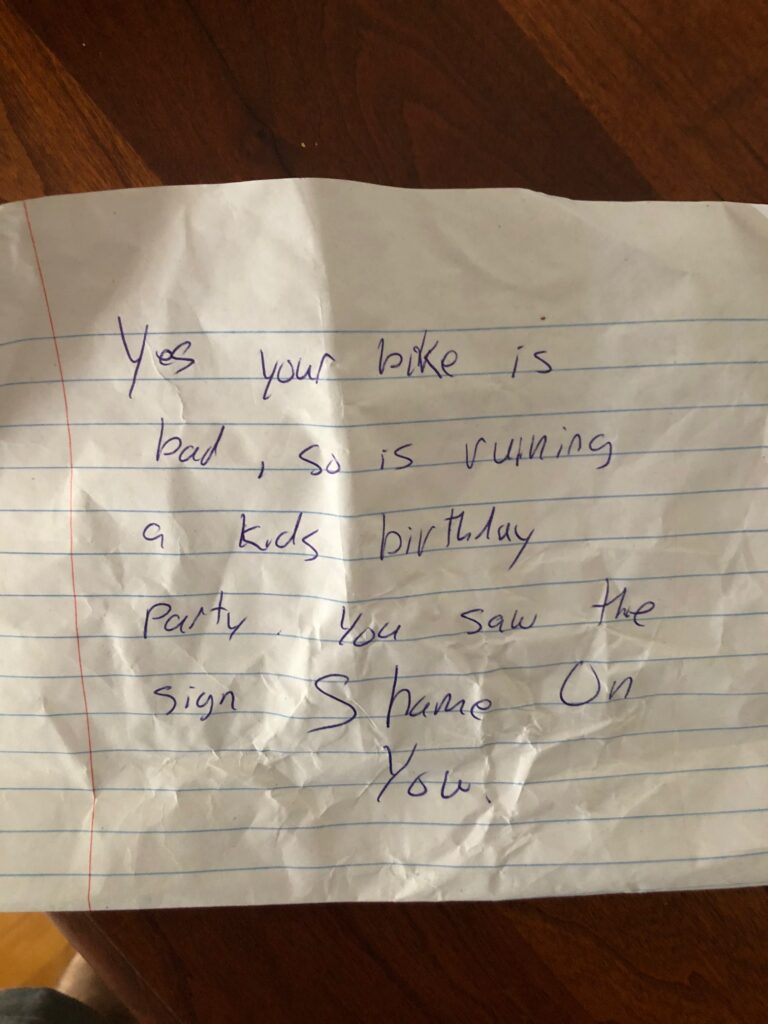 Yes your bike is
bad, so is ruining
a kids birthday
party. You saw the
sign Shame On
You.